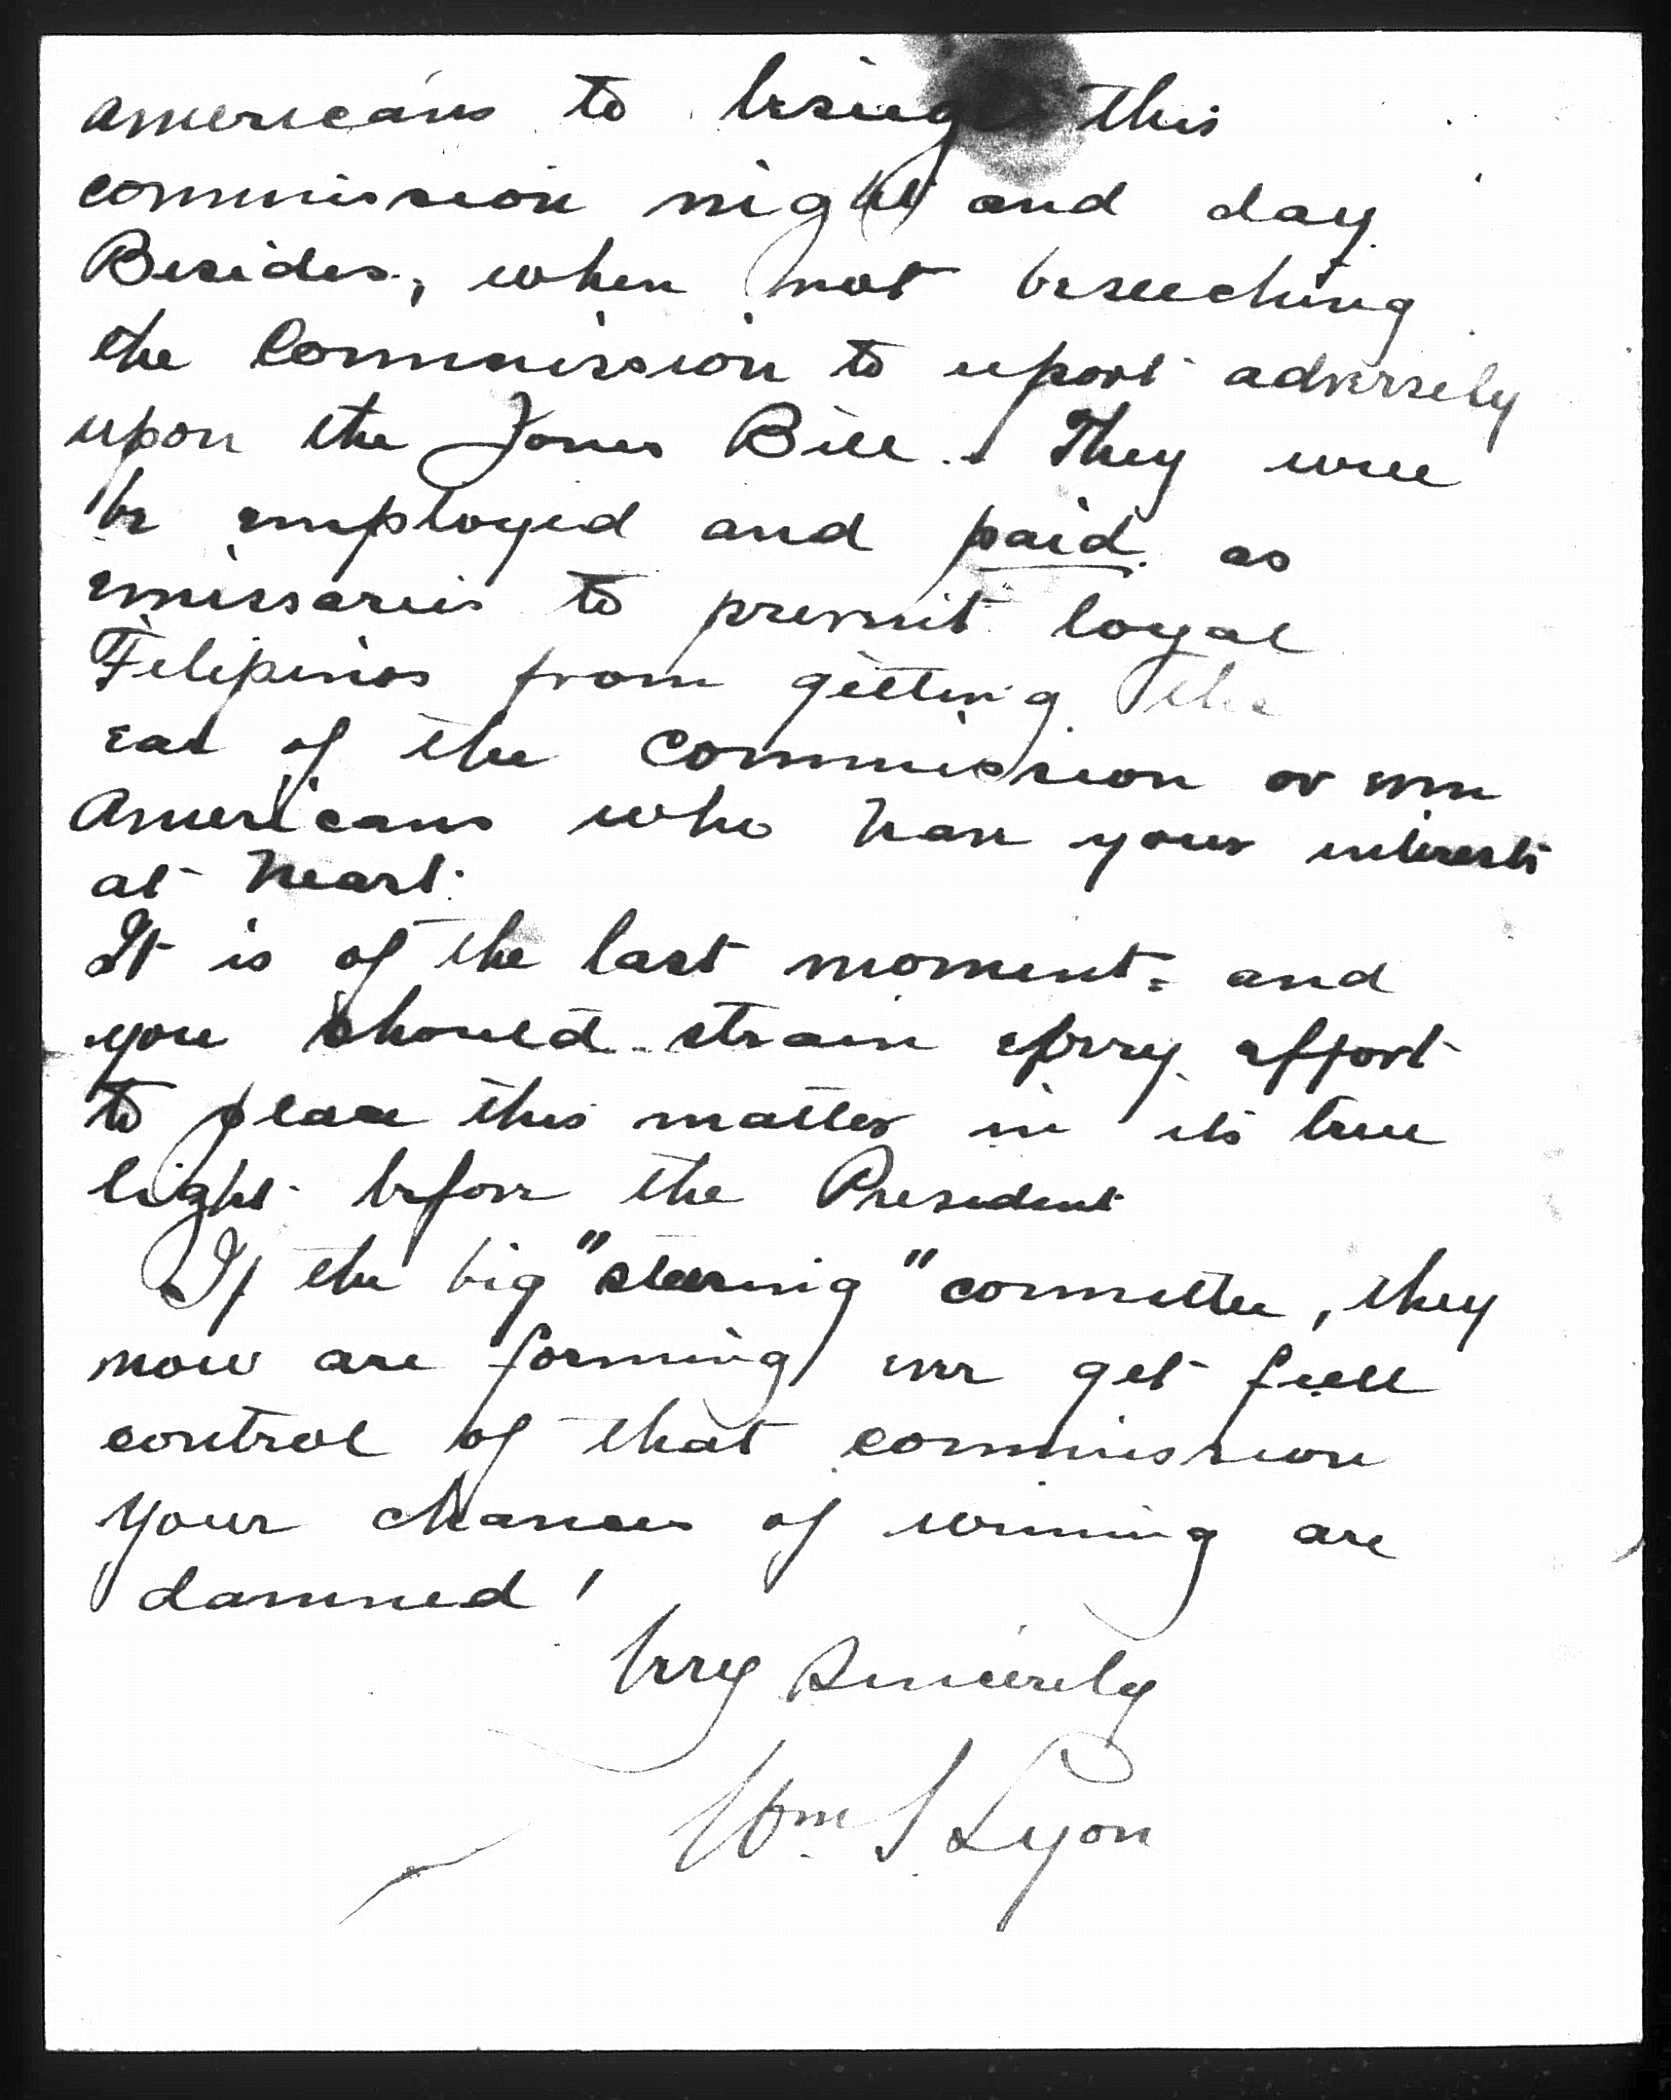 Americans to besiege this
commission night and day
Besides, when not beseeching
the Commission to report adversely
upon the Jones Bill. They will
be employed and paid as
emissaries to prevent loyal
Filipinos from getting the
ear of the Commission or even
Americans who have your interests
at heart.
It is of the last moment, and
you should strain every effort
to place this matter in its true
light before the President
If the big "steering" committee, they
now are forming ever get full
control of that commission
your chances of winning are
damned!
Very Sincerely
Wm S Lyon